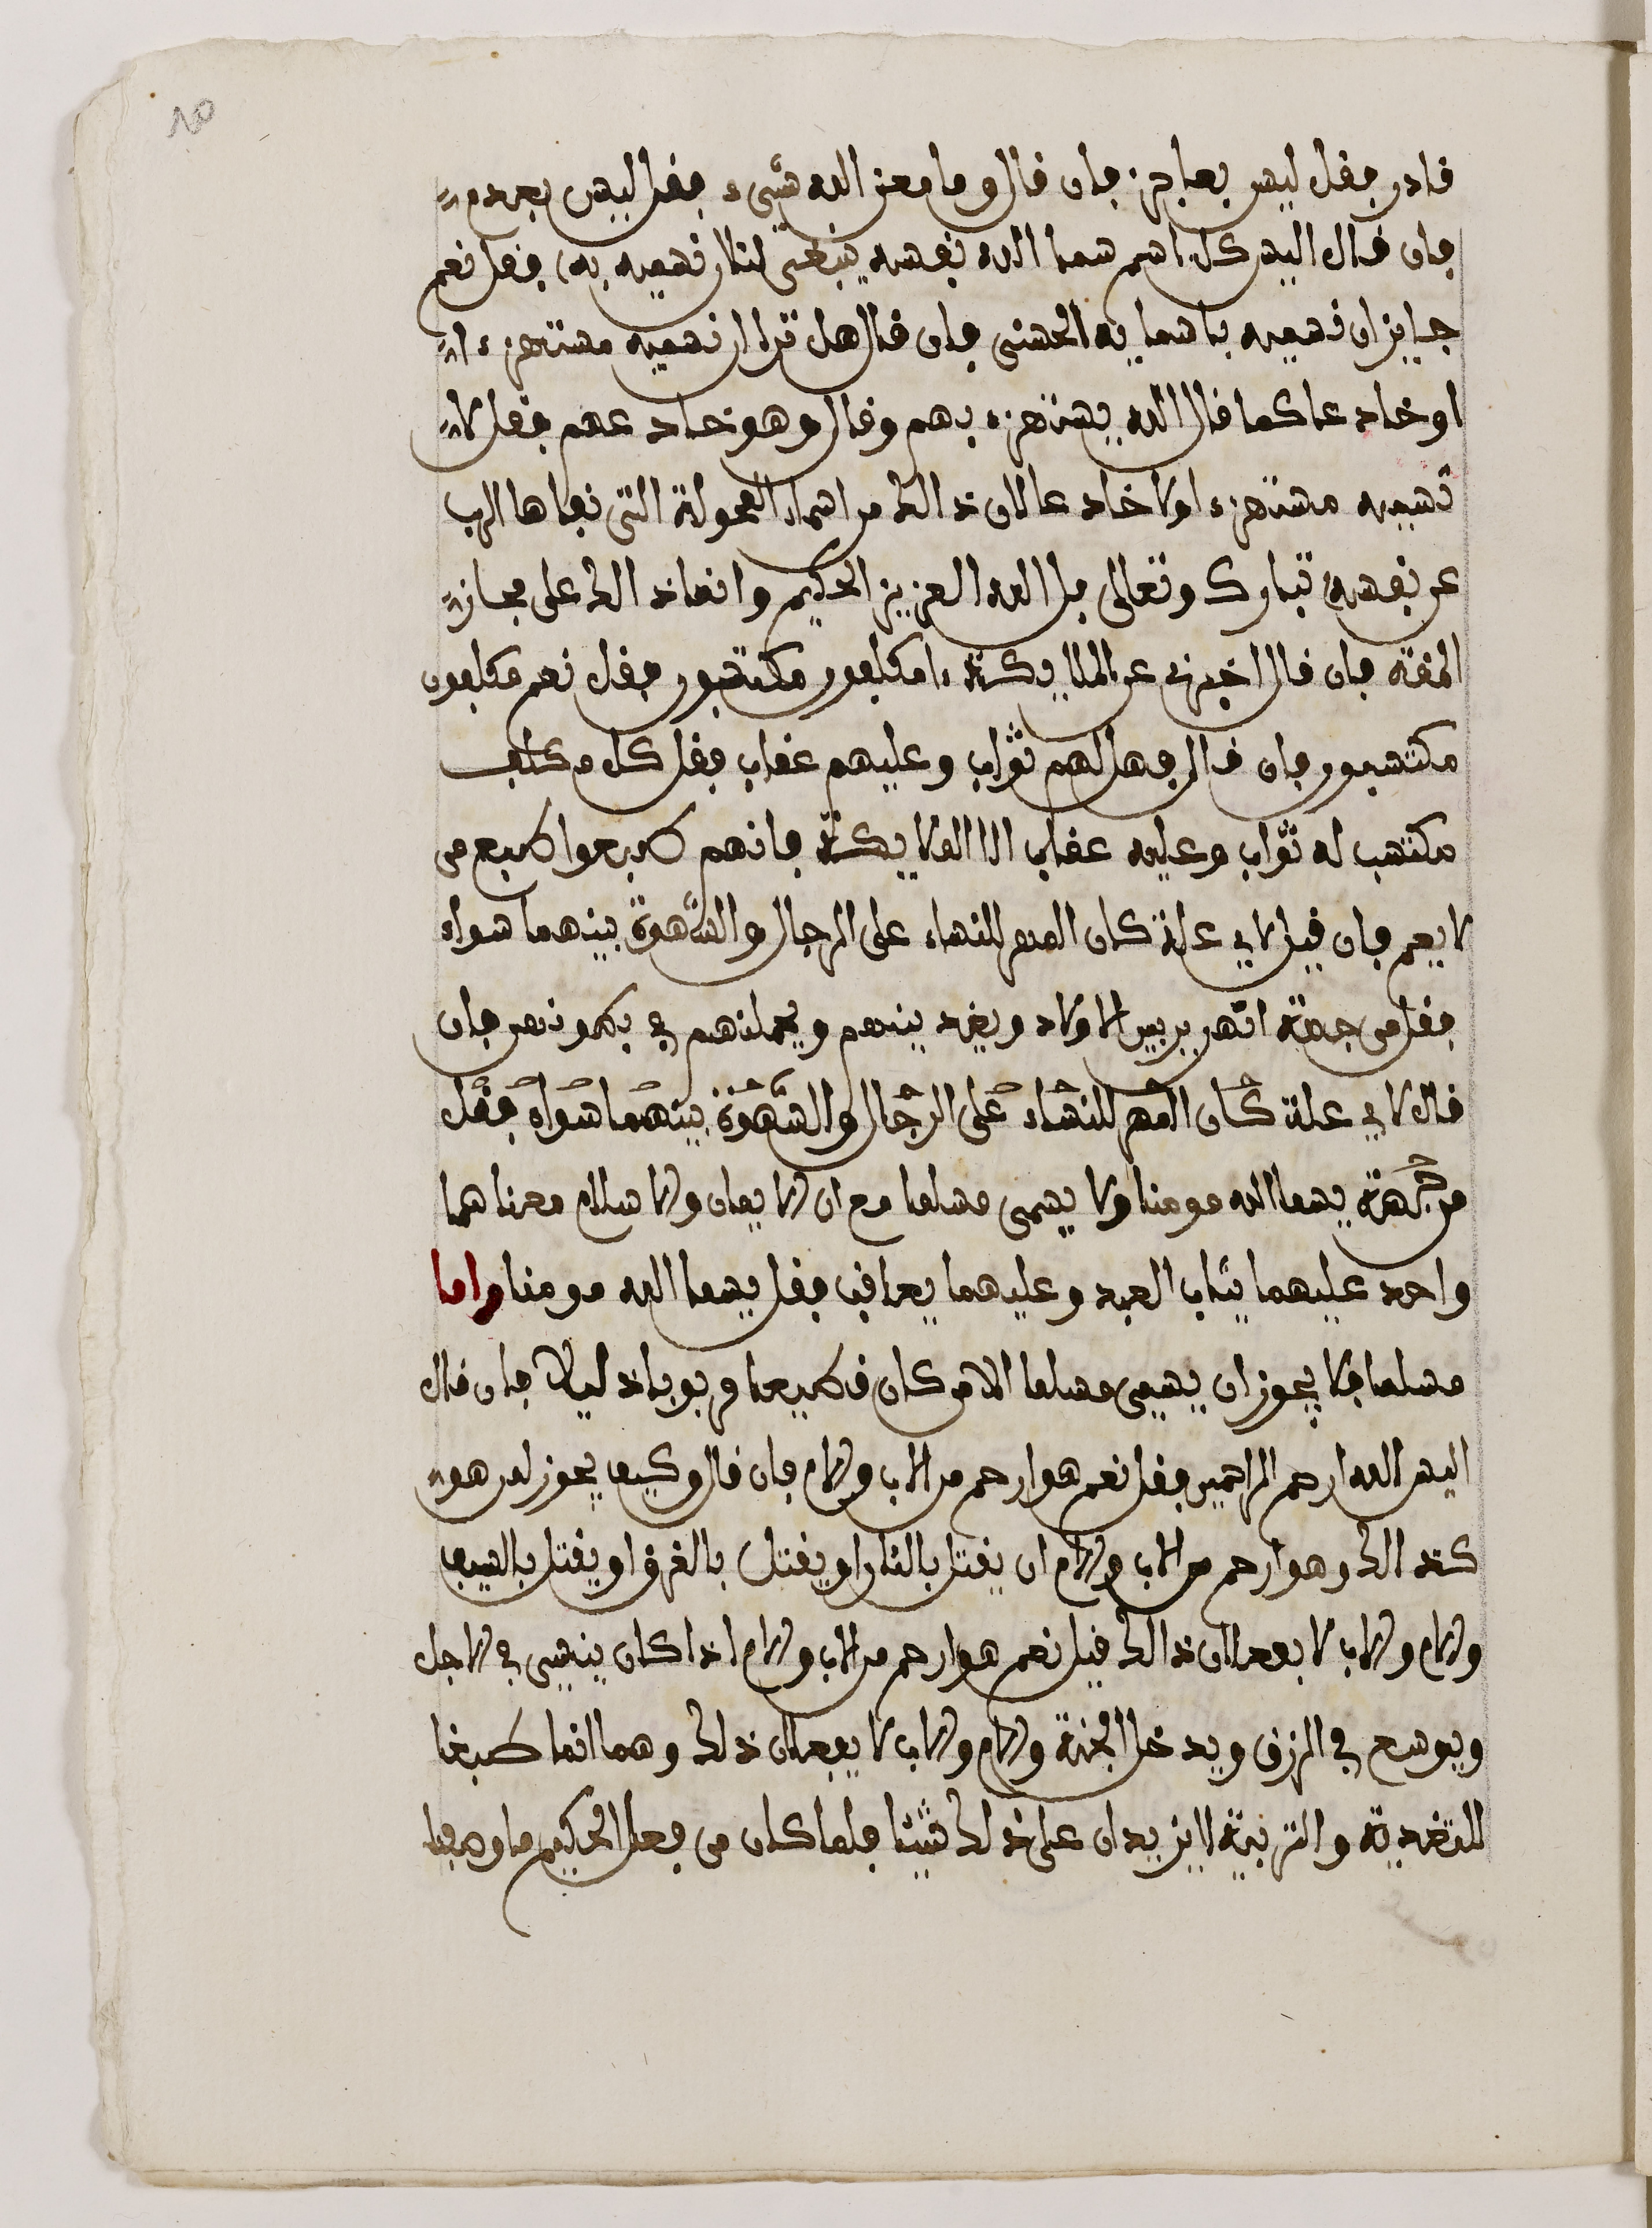 ٨٥
قادر فقل ليس بعاجز فان قال وما معنى الله شيء فقل ليس بعدم
فان قال اليس كل اسم سما الله نفسه ينبغي لنا ان نسميه به فقل نعم
جايز ان نسميه باسمايه الحسنى فان قال هل ترا ان نسميه مستهزءا
او خادعا كما قال الله يستهزء بهم وقال وهو خادعهم فقل لا
نسميه مستهزءا ولا خادعا لان ذالك من اسماء العجولة التي نفاها الرب
عن نفسه تبارك وتعالى بل الله العزيز الحكيم وانما ذالك على مجاز
اللغة فان قال اخبرني عن الملايكة امكلفون مكتسبون فقل نعم مكلفون
مكتسبون فان قال فهل لهم ثواب وعليهم عقاب فقل كل مكلف
مكتسب له ثواب وعليه عقاب الا الملايكة فانهم طبعوا طبع من
لا يعصي فان قيل لاي علة كان المهر للنساء على الرجال والشهوة بينهما سواء
فقل من جهة انهن يربين الاولاد و بينهم ويحملنهم في بطونهن فان
قال لاي علة كان المهر للنساء على الرجال والشهوة بينهما سواء فقل
من جهة يسما الله مومنا ولا يسمى مسلما مع ان الايمان والاسلام معناهما
واحد عليهما يثاب العبد وعليهما يعاقب فقل يسما الله مومنا واما
مسلما فلا يجوز ان يسمى مسلما الا من كان مطيعا لربه فان قال
اليس الله ارحم الراحمين فقل نعم هو ارحم من الاب والام فان قال وكيف يجوز لمن هو
كذالك وهو ارحم من الاب والام ان يقتل بالنار او يقتل بالغرق او يقتل بالسيف
والام والاب لا يفعلان ذالك قيل نعم هو ارحم من الاب والام اذا كان ينسي في الاجل
ويوسع في الرزق ويدخل الجنة والام والاب لا يفعلان ذلك وهما انما طبعا
للتغدية والتربية لا يزيدان على ذلك شيئا فلما كان من فعل الحكيم ما وصفنا